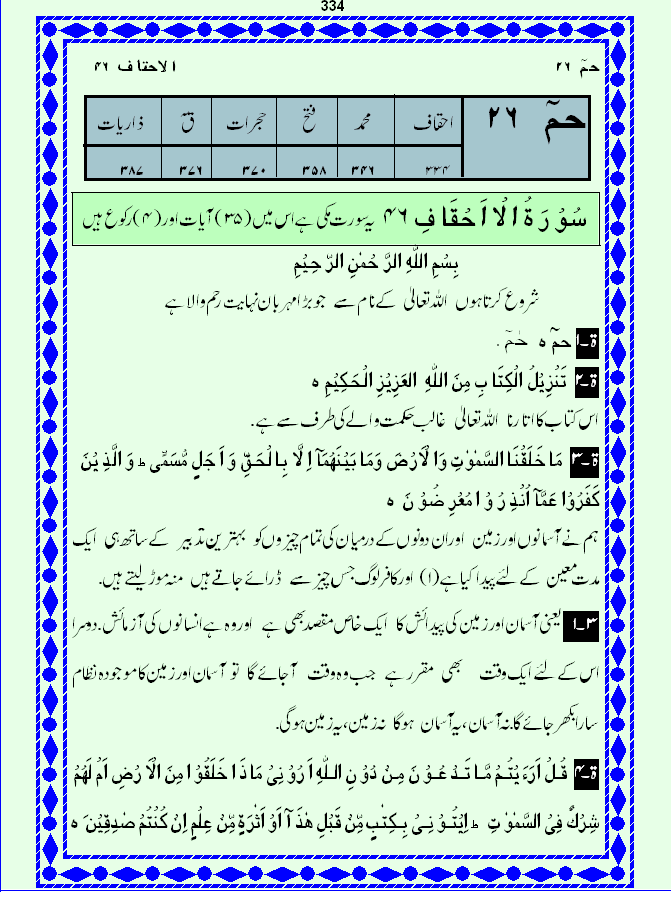 334
حمٓ ۲۶ الاحقاف ۴۶
حمٓ ۲۶ احقاف محمد فتح حجرات قٓ ذاریات
۳۳۴ ۳۴۶ ۳۵۸ ۳۷۰ ۳۷۶ ۳۸۷
سُوْرَةُ الْاَحْقَافِ ۴۶ یہ سورت مکی ہے اس میں (۳۵) آیات اور (۴) رکوع ہیں
بِسْمِ اللّٰهِ الرَّحْمٰنِ الرَّحِيْمِ
شروع کرتا ہوں اللہ تعالیٰ کے نام سے جو بڑا مہربان نہایت رحم والا ہے
ة۔۱ حمٓ ہ حٰمٓ .
ة۔۲ تَنْزِيْلُ الْكِتَابِ مِنَ اللّٰهِ الْعَزِيْزِ الْحَكِيْمِ ہ
اس کتاب کا اتارنا اللہ تعالیٰ غالب حکمت والے کی طرف سے ہے.
ة۔۳ مَا خَلَقْنَا السَّمٰوٰتِ وَالْاَرْضَ وَمَا بَيْنَهُمَآ اِلَّا بِالْحَقِّ وَاَجَلٍ مُّسَمًّى ؕ وَالَّذِيْنَ
كَفَرُوْا عَمَّآ اُنْذِرُوْا مُعْرِضُوْنَ ہ
ہم نے آسانوں اور زمین اور ان دونوں کے درمیان کی تمام چیزوں کو بہترین تدبیر کے ساتھ ہی ایک
مدت معین کے لئے پیدا کیا ہے (۱) اور کافر لوگ جس چیز سے ڈرائے جاتے ہیں منہ موڑ لیتے ہیں.
۳۔۱ یعنی آسمان اور زمین کی پیدائش کا ایک خاص مقصد بھی ہے اور وہ ہے انسانوں کی آزمائش. دوسرا
اس کے لئے ایک وقت بھی مقرر ہے جب وہ وقت آ جائے گا تو آسمان اور زمین کا موجودہ نظام
سارا بکھر جائے گا. نہ آسمان، یہ آسمان ہوگا نہ زمین، یہ زمین ہوگی.
ة۔۴ قُلْ اَرَءَيْتُمْ مَّا تَدْعُوْنَ مِنْ دُوْنِ اللّٰهِ اَرُوْنِيْ مَاذَا خَلَقُوْا مِنَ الْاَرْضِ اَمْ لَهُمْ
شِرْكٌ فِي السَّمٰوٰتِ ؕ اِيْتُوْنِيْ بِكِتٰبٍ مِّنْ قَبْلِ هٰذَآ اَوْ اَثٰرَةٍ مِّنْ عِلْمٍ اِنْ كُنْتُمْ صٰدِقِيْنَ ہ